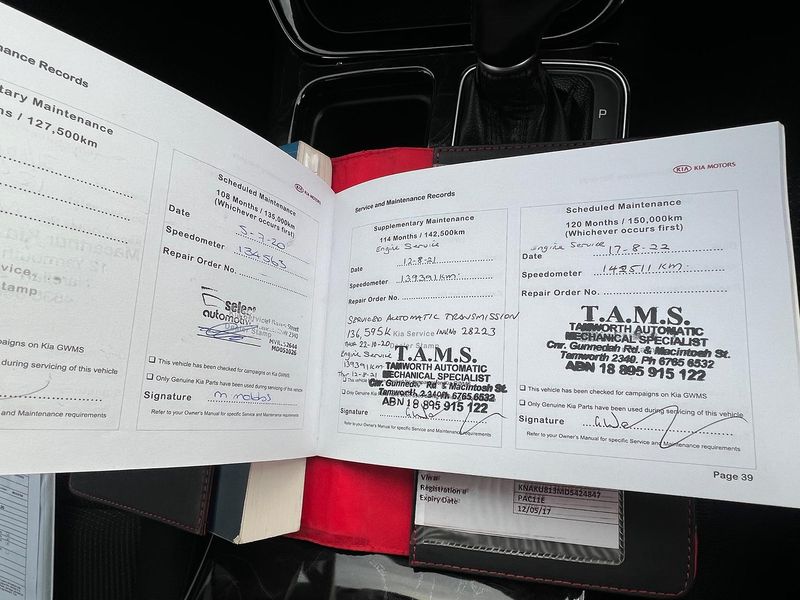 nance Records
tary Maintenance
ns / 127,500km
ervice.
tamp
ampaigns on Kia GWMS
during servicing of this vehicle
and Maintenance requirements
KIA
Scheduled Maintenance
108 Months / 135,000km
(Whichever occurs first)
Date 5-7-20
Speedometer 134563
Repair Order No.
select
automotive
MD051026
This vehicle has been checked for campaigns on Kia GWMS
Only Genuine Kia Parts have been used during servicing of this vehicle
Signature
Refer to your Owner's Manual for specific Service and Maintenance requirements
P
KIA KIA MOTORS
Service and Maintenance Records
Supplementary Maintenance
114 Months / 142,500km
Engine Service
Date 12-8-21
Speedometer 139391km
Repair Order No.
SERVICED AUTOMATIC TRANSMISSION
136,595K Kia Service INVNo 28223
22-10-20 Dealer Stamp
Engine Service
139391km
12-8-21
T.A.M.S.
TAMWORTH AUTOMATIC
MECHANICAL SPECIALIST
Cnr. Gunnedah Rd. & Macintosh St.
Tamworth 2340. Ph 6765 6532
ABN 18 895 915 122
Signature
Refer to your Owner's Manual for specific Service and Maintenance requirements
Scheduled Maintenance
120 Months / 150,000km
(Whichever occurs first)
Engine Service
Date 17-8-22
Speedometer 148511 KM
Repair Order No.
T.A.M.S.
TAMWORTH AUTOMATIC
MECHANICAL SPECIALIST
Cnr. Gunnedah Rd. & Macintosh St.
Tamworth 2340. Ph 6765 6532
ABN 18 895 915 122
This vehicle has been checked for campaigns on Kia GWMS
Only Genuine Kia Parts have been used during servicing of this vehicle
Signature
Refer to your Owner's Manual for specific Service and Maintenance requirements
Page 39
Vin#
KNAKU813MD5424847
Registration# PAC11E
Expiry Date 12/05/17